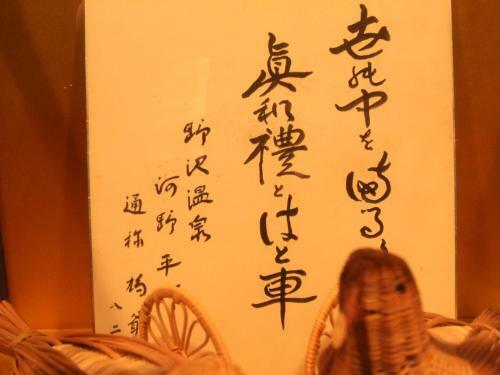 世の中を満るく
眞和禮とはと車
野沢温泉
河野平
通称
八二